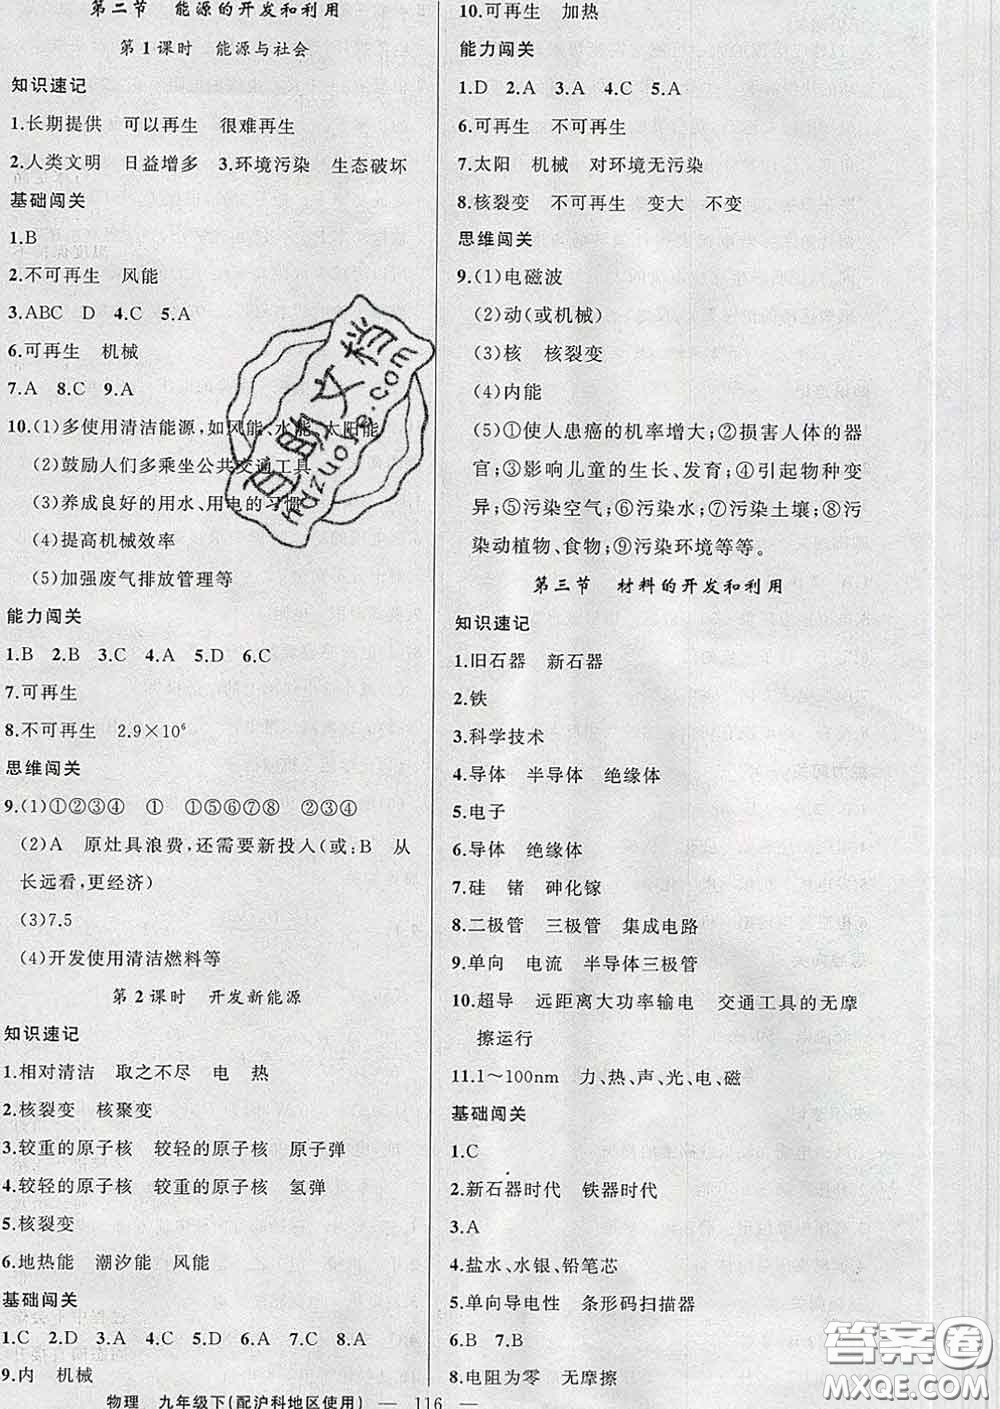 第二节 能源的开发和利用
第1课时 能源与社会
知识速记
1.长期提供 可以再生 很难再生
2.人类文明 日益增多 3.环境污染 生态破坏
基础闯关
1.B
2.不可再生 风能
3.ABC D 4.C 5.A
6.可再生 机械
7.A 8.C 9.A
10.(1)多使用清洁能源,如风能、水能、太阳能
(2)鼓励人们多乘坐公共交通工具
(3)养成良好的用水、用电的习惯
(4)提高机械效率
(5)加强废气排放管理等
能力闯关
1.B 2.B 3.C 4.A 5.D 6.C
7.可再生
8.不可再生 2.9×10⁶
思维闯关
9.(1)①②③④ ① ①⑤⑥⑦⑧ ②③④
(2)A 原灶具浪费,还需要新投入(或:B 从
长远看,更经济)
(3)7.5
(4)开发使用清洁燃料等
第2课时 开发新能源
知识速记
1.相对清洁 取之不尽 电 热
2.核裂变 核聚变
3.较重的原子核 较轻的原子核 原子弹
4.较轻的原子核 较重的原子核 氢弹
5.核裂变
6.地热能 潮汐能 风能
基础闯关
1.C 2.D 3.A 4.C 5.D 6.A 7.C 8.A
9.内 机械
10.可再生 加热
能力闯关
1.D 2.A 3.A 4.C 5.A
6.可再生 不可再生
7.太阳 机械 对环境无污染
8.核裂变 不可再生 变大 不变
思维闯关
9.(1)电磁波
(2)动(或机械)
(3)核 核裂变
(4)内能
(5)①使人患癌的机率增大;②损害人体的器
官;③影响儿童的生长、发育;④引起物种变
异;⑤污染空气;⑥污染水;⑦污染土壤;⑧污
染动植物、食物;⑨污染环境等等。
第三节 材料的开发和利用
知识速记
1.旧石器 新石器
2.铁
3.科学技术
4.导体 半导体 绝缘体
5.电子
6.导体 绝缘体
7.硅 锗 砷化镓
8.二极管 三极管 集成电路
9.单向 电流 半导体三极管
10.超导 远距离大功率输电 交通工具的无摩
擦运行
11.1～100nm 力、热、声、光、电、磁
基础闯关
1.C
2.新石器时代 铁器时代
3.A
4.盐水、水银、铅笔芯
5.单向导电性 条形码扫描器
6.B 7.B
8.电阻为零 无摩擦
物理 九年级下(配沪科地区使用) — 116 —
答案圈
MXQE.COM